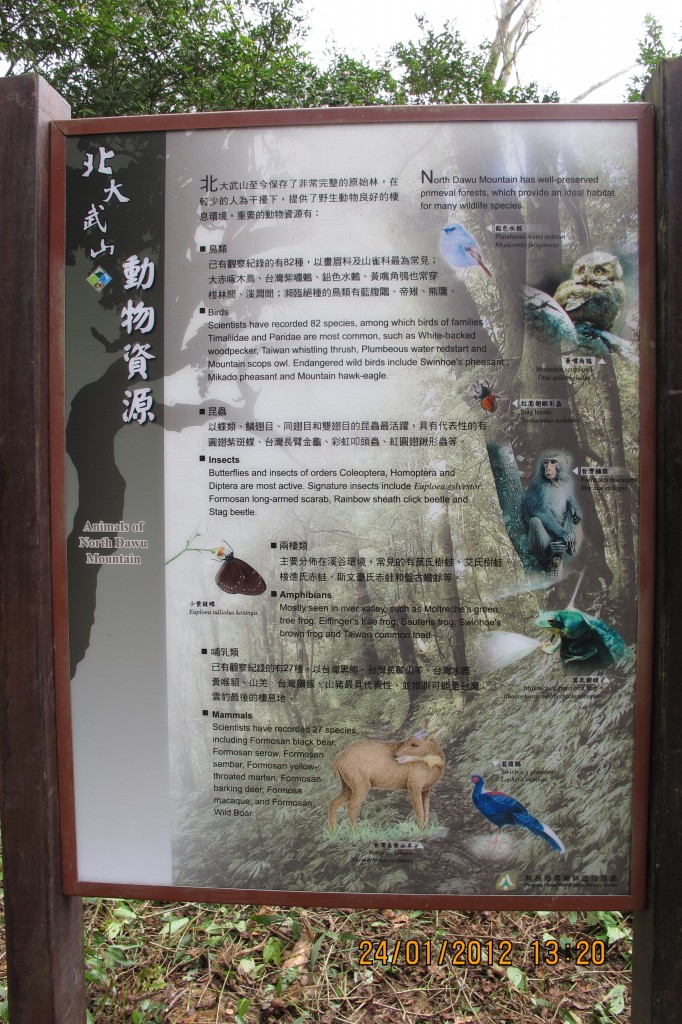 北大武山
動物資源
Animals of
North Dawu
Mountain
北大武山至今保存了非常完整的原始林，在
較少的人為干擾下，提供了野生動物良好的棲
息環境，重要的動物資源有：
North Dawu Mountain has well-preserved
primeval forests, which provide an ideal habitat
for many wildlife species.
■ 鳥類
已有觀察紀錄的有82種，以畫眉科及山雀科最為常見；
大赤啄木鳥、台灣紫嘯鶇、鉛色水鶇、黃嘴角鴞也常穿
梭林間、溪澗間；瀕臨絕種的鳥類有藍腹鷴、帝雉、熊鷹。
■ Birds
Scientists have recorded 82 species, among which birds of families
Timaliidae and Paridae are most common, such as White-backed
woodpecker, Taiwan whistling thrush, Plumbeous water redstart and
Mountain scops owl. Endangered wild birds include Swinhoe's pheasant,
Mikado pheasant and Mountain hawk-eagle.
■ 昆蟲
以蝶類、鱗翅目、同翅目和雙翅目的昆蟲最活躍，具有代表性的有
圓翅紫斑蝶、台灣長臂金龜、彩虹叩頭蟲、紅圓翅鍬形蟲等。
■ Insects
Butterflies and insects of orders Coleoptera, Homoptera and
Diptera are most active. Signature insects include Euploea sylvestor,
Formosan long-armed scarab, Rainbow sheath click beetle and
Stag beetle.
■ 兩棲類
主要分佈在溪谷環境，常見的有莫氏樹蛙、艾氏樹蛙、
梭德氏赤蛙、斯文豪氏赤蛙和盤古蟾蜍等。
■ Amphibians
Mostly seen in river valley, such as Moltreche's green
tree frog, Eiffinger's tree frog, Sauteris frog, Swinhoe's
brown frog and Taiwan common toad.
■ 哺乳類
已有觀察紀錄的有27種，以台灣黑熊、台灣長鬃山羊、台灣水鹿、
黃喉貂、山羌、台灣獼猴、山豬最具代表性，並推測可能是台灣
雲豹最後的棲息地。
■ Mammals
Scientists have recorded 27 species,
including Formosan black bear,
Formosan serow, Formosan
sambar, Formosan yellow-
throated marten, Formosan
barking deer, Formosa
macaque, and Formosan
Wild Boar.
鉛色水鶇
Plumbeous water redstart
Rhyacornis fuliginosus
黃嘴角鴞
Mountain scops owl
紅圓翅鍬形蟲
Stag beetle
台灣獼猴
Formosan macaque
小紫斑蝶
Euploea tulliolus koxinga
莫氏樹蛙
藍腹鷴
Swinhoe's pheasant
台灣長鬃山羊
24/01/2012 13:20